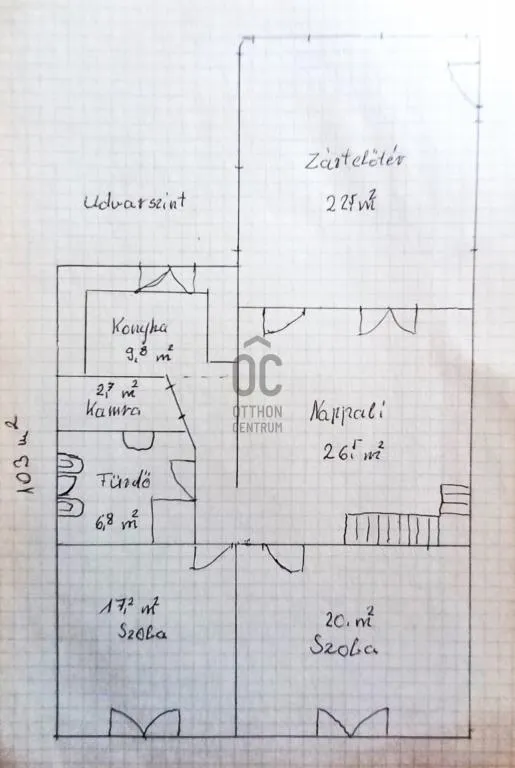 Zártelőtér
22,5 m²
Udvarszint
Konyha
9,8 m²
2,7 m²
Kamra
ÔC
OTTHON
CENTRUM
Nappali
26,5 m²
Fürdő
6,8 m²
103 m²
17,2 m²
Szoba
20. m²
Szoba